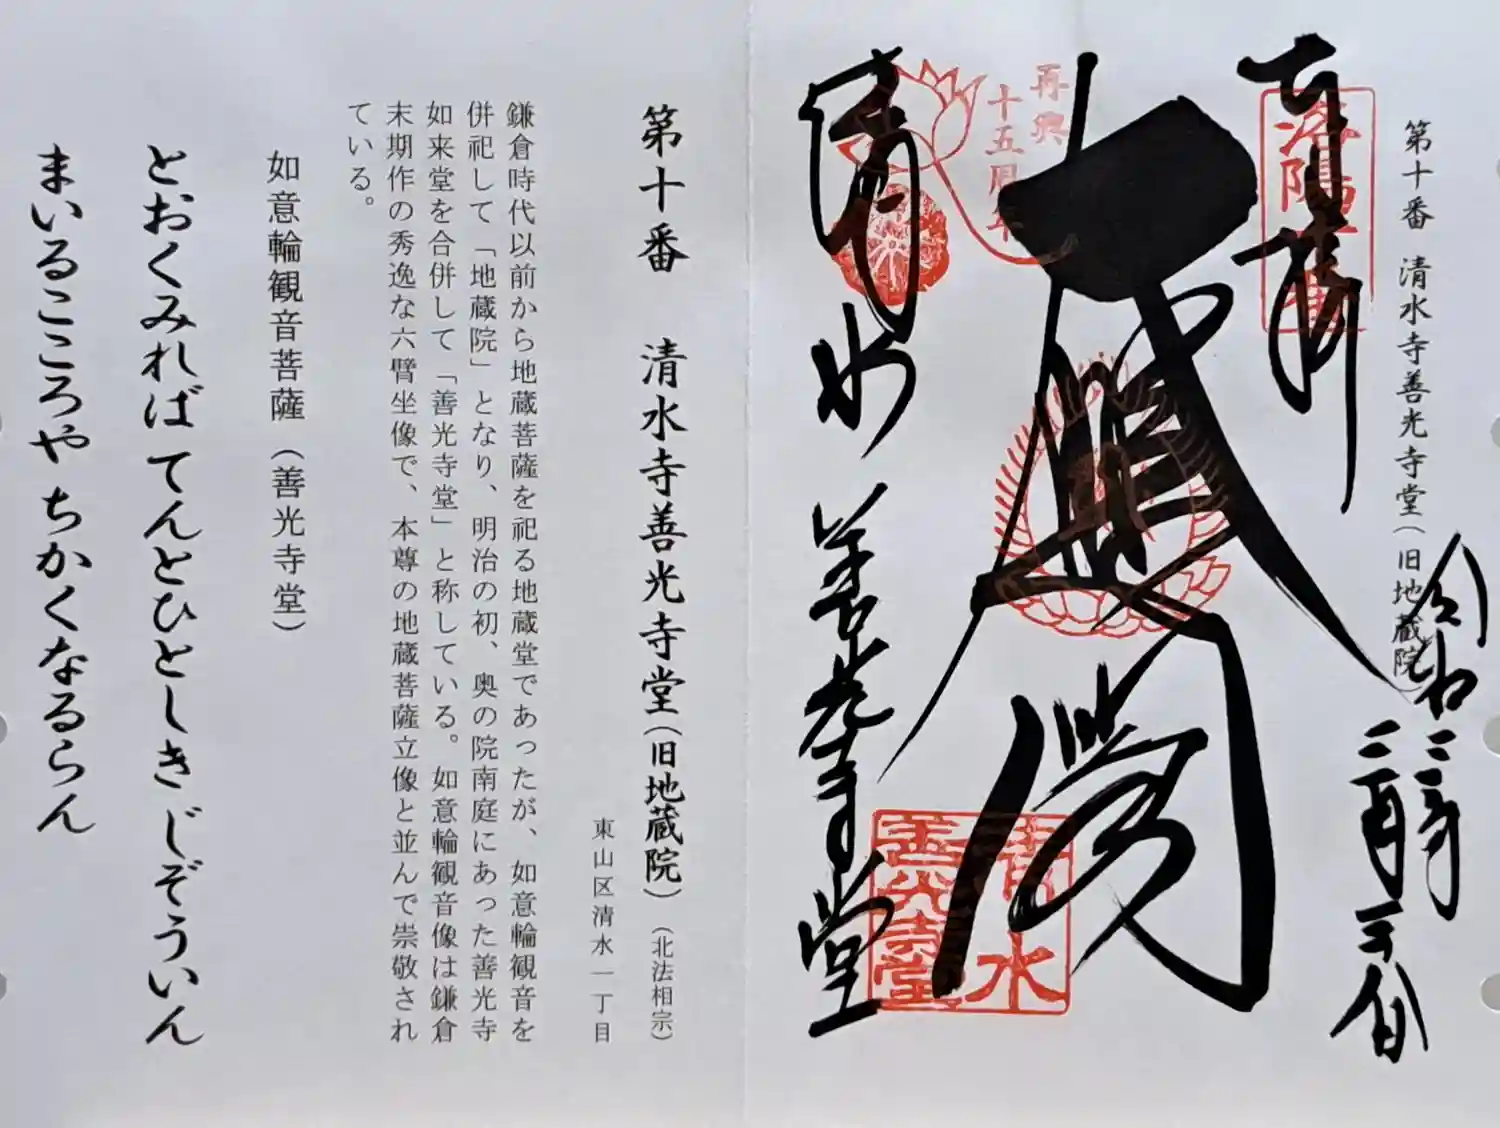 第十番 清水寺善光寺堂(旧地蔵院)
奉拝
洛陽
再興
十五周年
大悲閣
令和二年
二月
清水 善光寺堂
清水
善光寺堂
第十番 清水寺善光寺堂(旧地蔵院)(北法相宗)
東山区清水一丁目
鎌倉時代以前から地蔵菩薩を祀る地蔵堂であったが、如意輪観音を
併祀して「地蔵院」となり、明治の初、奥の院南庭にあった善光寺
如来堂を合併して「善光寺堂」と称している。如意輪観音像は鎌倉
末期作の秀逸な六臂坐像で、本尊の地蔵菩薩立像と並んで崇敬され
ている。
如意輪観音菩薩(善光寺堂)
とおくみれば てんとひとしき じぞういん
まいるこころや ちかくなるらん